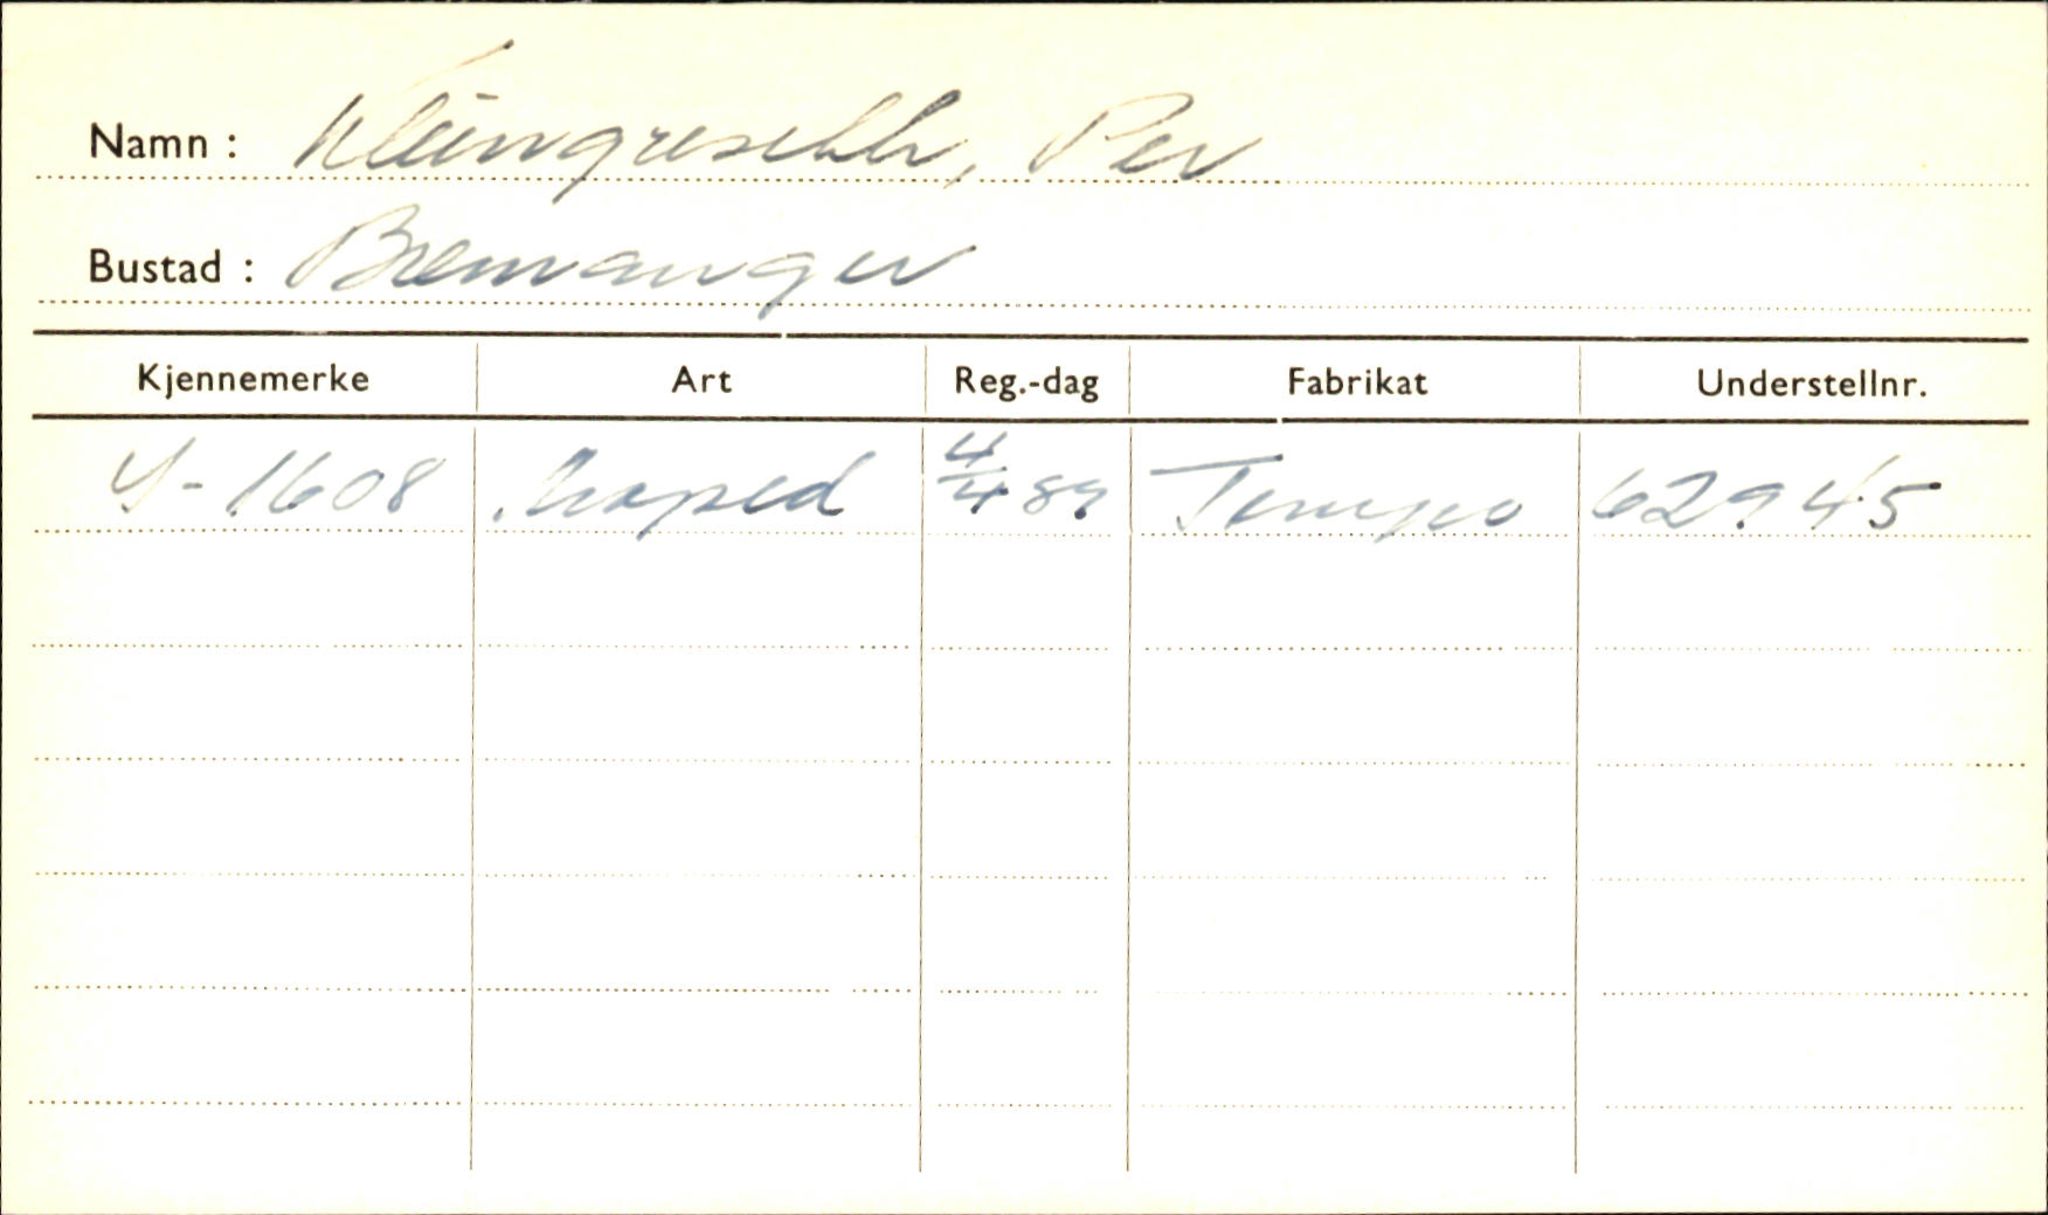 Namn : Per
Bustad : Bremanger
Kjennemerke Art Reg.-dag Fabrikat Understellnr.
Moped 4/4 Tempo 62945